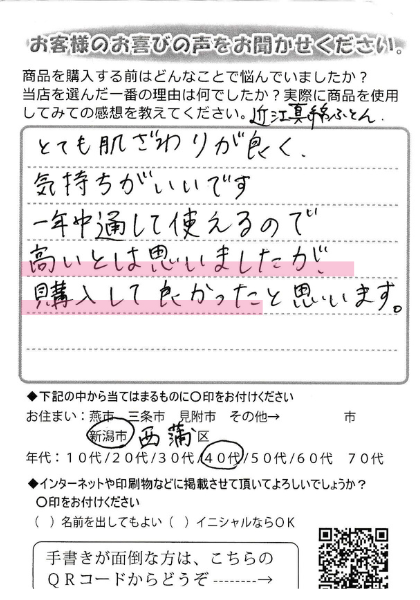 お客様のお喜びの声をお聞かせください。
商品を購入する前はどんなことで悩んでいましたか？
当店を選んだ一番の理由は何でしたか？実際に商品を使用
してみての感想を教えてください。近江真綿ふとん.
とても肌ざわりが良く、
気持ちがいいです
一年中通して使えるので
高いとは思いましたが、
購入して良かったと思います。
◆下記の中から当てはまるものに〇印をお付けください
お住まい：燕市　三条市　見附市　その他→　　　　市
新潟市 西蒲区
年代：１０代/２０代/３０代/４０代/５０代/６０代　７０代
◆インターネットや印刷物などに掲載させて頂いてよろしいでしょうか？
〇印をお付けください
（ ）名前を出してもよい（ ）イニシャルならＯＫ
手書きが面倒な方は、こちらの
ＱＲコードからどうぞ --------→